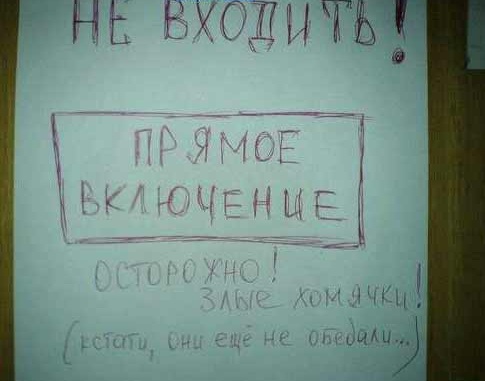 НЕ ВХОДИТЬ!
ПРЯМОЕ
ВКЛЮЧЕНИЕ
ОСТОРОЖНО!
Злые хомячки!
(кстати, они ещё не обедали...)